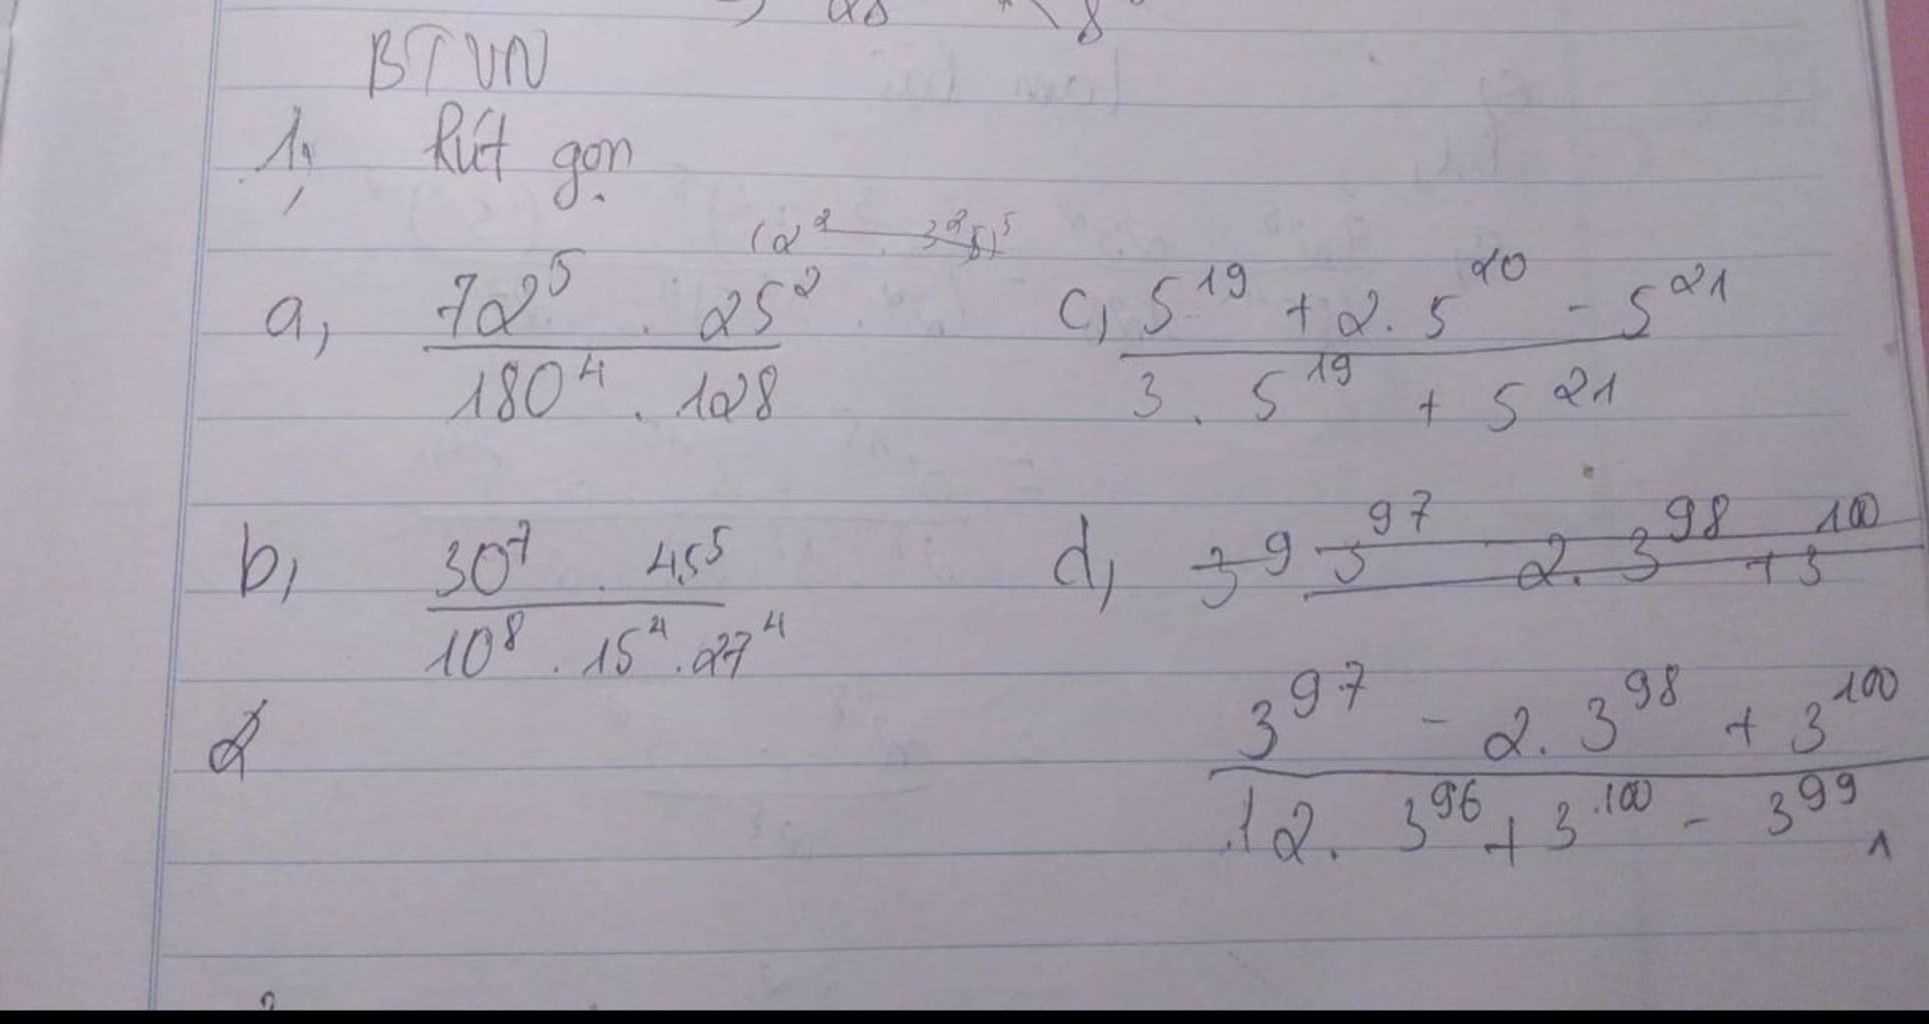 BTVN
1, Rút gọn
a, 72⁵ . 25² / 180⁴ . 128
c, 5¹⁹ + 2. 5²⁰ - 5²¹ / 3 . 5¹⁹ + 5²¹
b, 30⁷ . 45⁵ / 10⁸ . 15⁴ . 27⁴
d,
3⁹⁷ - 2. 3⁹⁸ + 3¹⁰⁰ / 12. 3⁹⁶ + 3¹⁰⁰ - 3⁹⁹